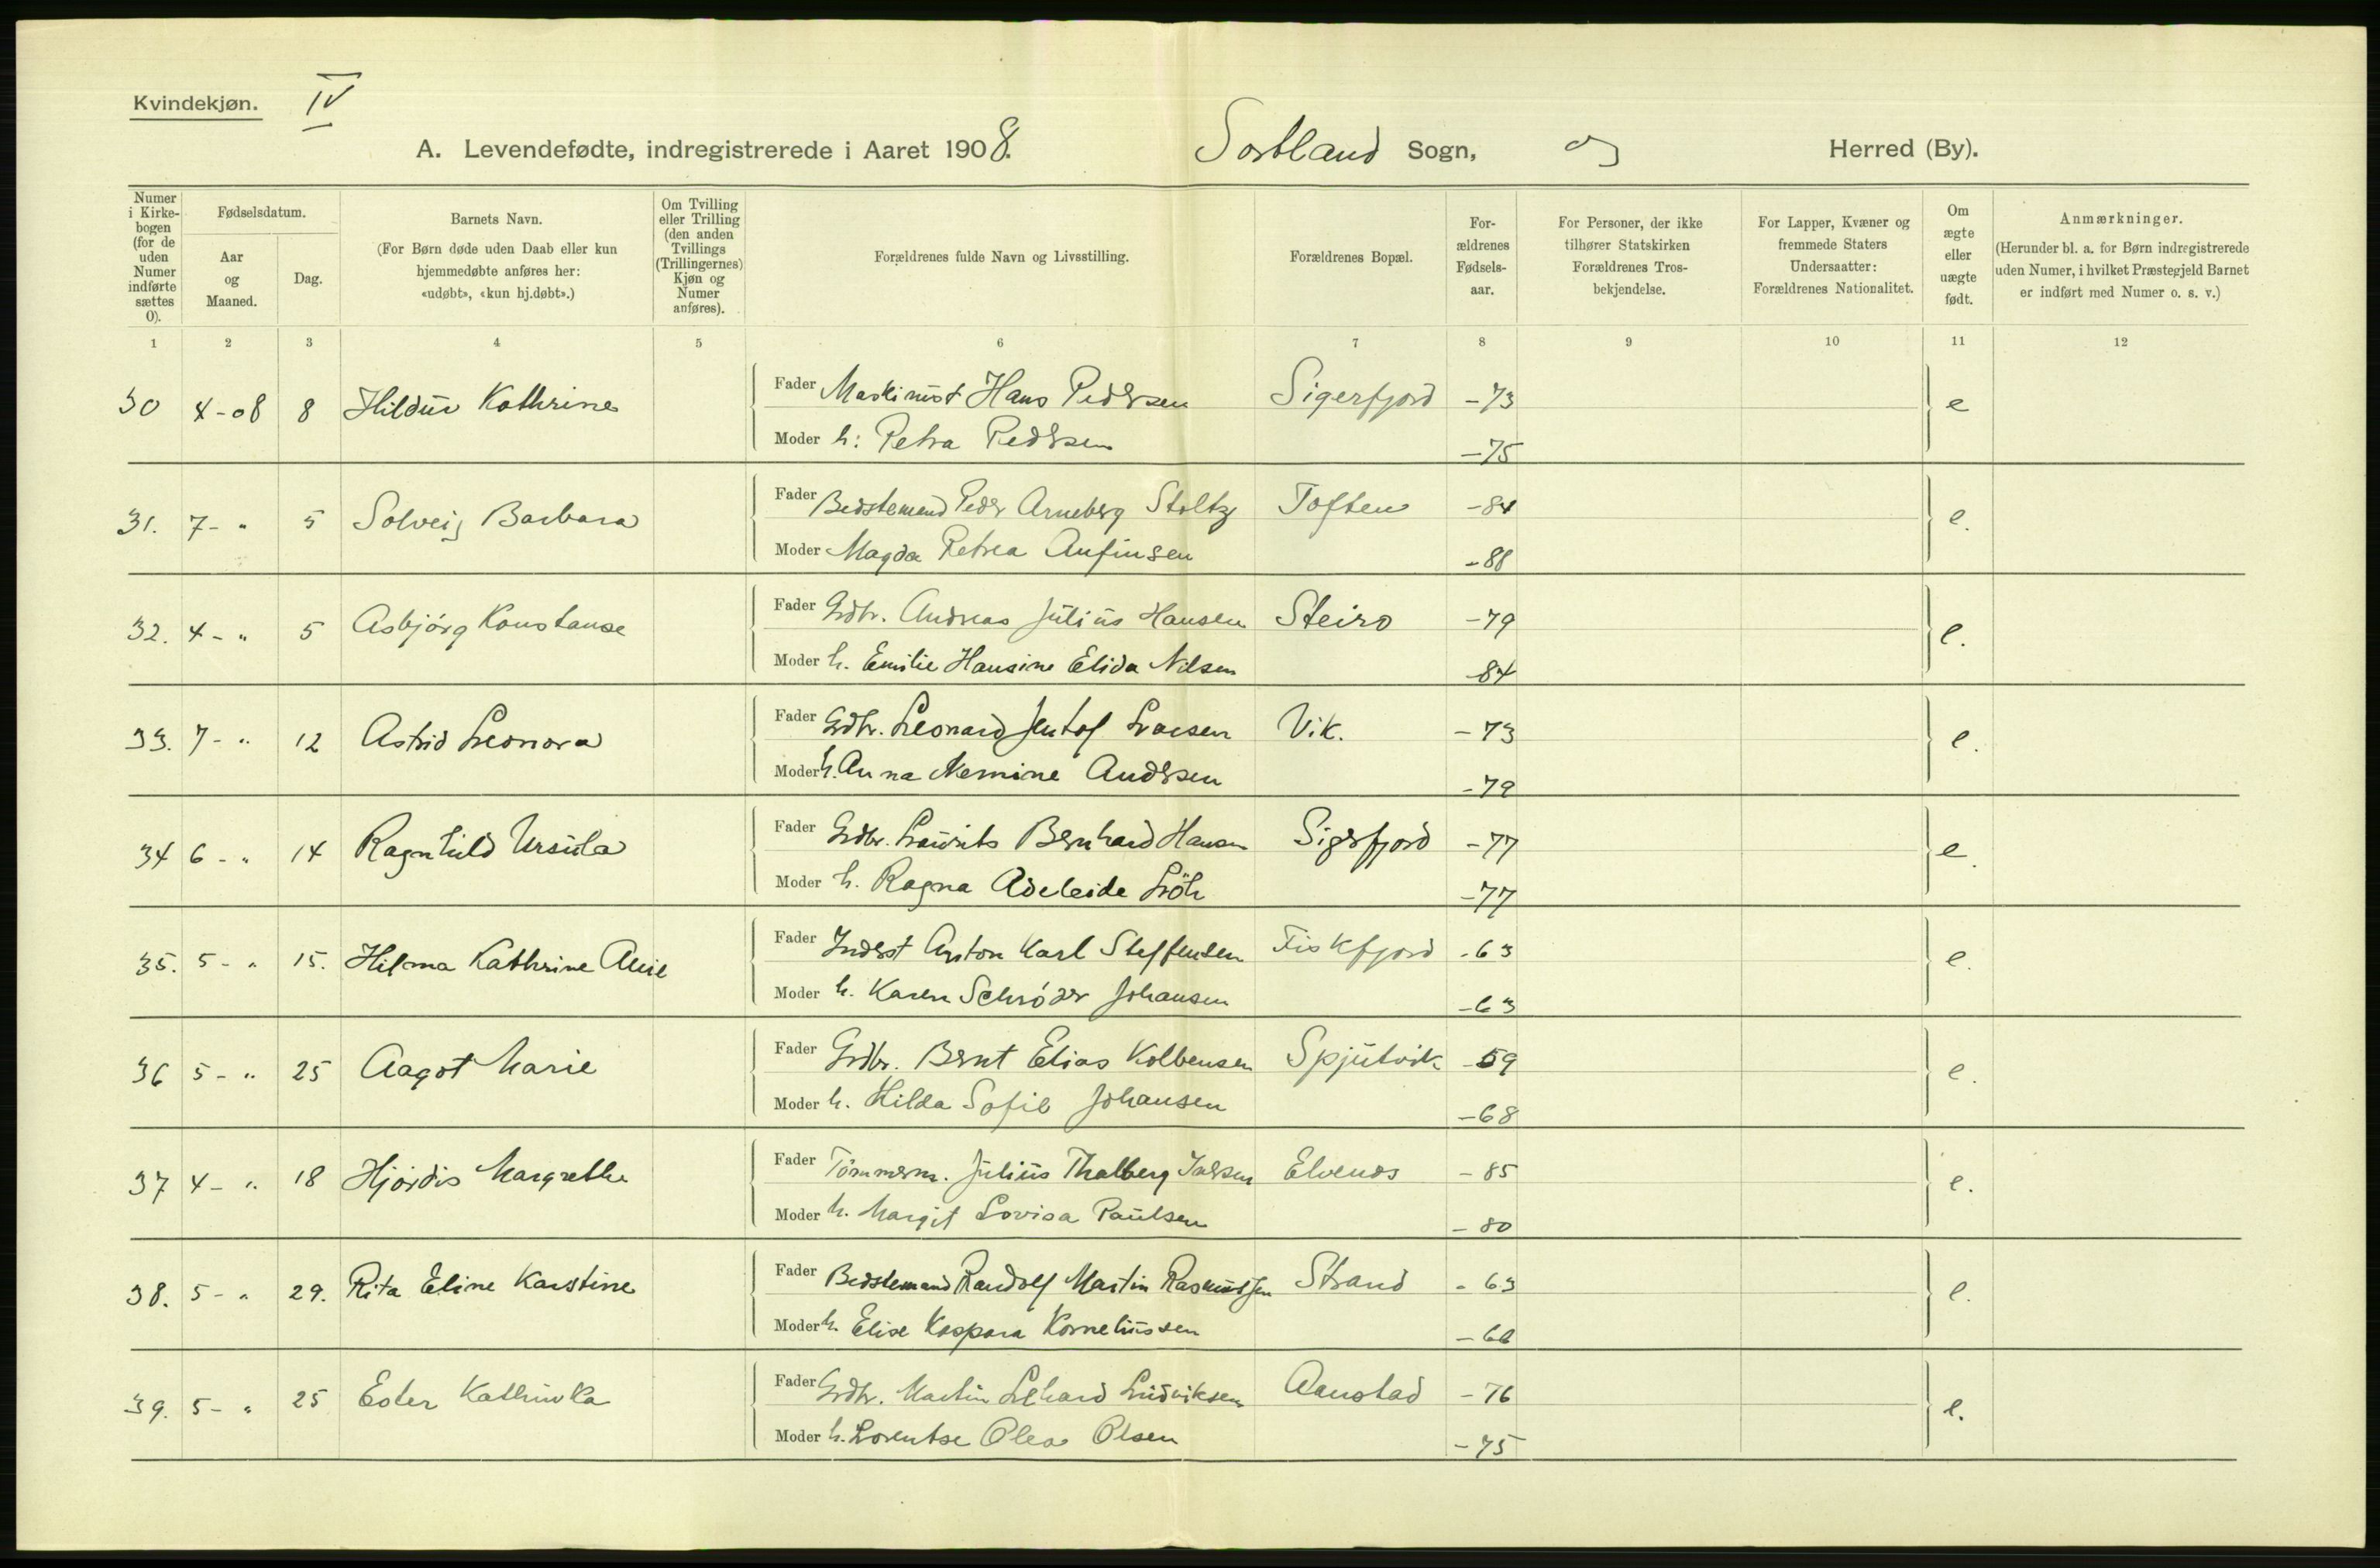 Kvindekjøn. IV
A. Levendefødte, indregistrerede i Aaret 1908. Sortland Sogn, og Herred (By).
Numer i Kirkebogen (for de uden Numer indførte sættes 0).
Fødselsdatum.
Aar og Maaned.
Dag.
Barnets Navn.
(For Børn døde uden Daab eller kun hjemmedøbte anføres her: «udøbt», «kun hj.døbt».)
Om Tvilling eller Trilling (den anden Tvillings (Trillingernes) Kjøn og Numer anføres).
Forældrenes fulde Navn og Livsstilling.
Forældrenes Bopæl.
For-ældrenes Fødsels-aar.
For Personer, der ikke tilhører Statskirken Forældrenes Tros-bekjendelse.
For Lapper, Kvæner og fremmede Staters Undersaatter: Forældrenes Nationalitet.
Om ægte eller uægte født.
Anmærkninger.
(Herunder bl. a. for Børn indregistrerede uden Numer, i hvilket Præstegjeld Barnet er indført med Numer o. s. v.)
1 2 3 4 5 6 7 8 9 10 11 12
30 4-08 8 Hildur Kathrine Fader Maskinist Hans Pedersen Sigerfjord -73 e
Moder h: Petra Pedersen -75
31. 7- " 5 Solveig Barbara Fader Bedstemand Peder Arneberg Stoltz Toften -84 e.
Moder Magda Petrea Anfinsen -88
32. 4- " 5 Asbjörg Konstanse Fader Gdbr. Andreas Julius Hansen Steiro -79 e.
Moder h. Emilie Hansine Elida Nilsen -84
33. 7- " 12 Astrid Leonora Fader Gdbr. Leonard Jentof Larsen Vik. -73 e.
Moder h. Anna Nermine Andersen -79
34 6- " 14 Ragnhild Ursula Fader Gdbr. Laurits Bernhard Hansen Sigerfjord -77 e.
Moder h. Ragna Adeleide Löh -77
35. 5- " 15. Hilma Kathrine Fader Inderst Anton Karl Steffensen Fiskfjord -63 e.
Moder h. Karen Schröder Johansen -63
36 5- " 25 Aagot Marie Fader Gdbr. Bernt Elias Kolbensen Spjutvik -59 e.
Moder h. Hilda Sofie Johansen -68
37 4- " 18 Hjördis Margrethe Fader Tömmerm. Julius Thalberg Elvenes -85 e.
Moder h. Margit Lovisa Paulsen -80
38. 5- " 29. Rita Eline Karstine Fader Bedstemand Randolf Martin Rasmussen Strand -63 e.
Moder h. Elise Kaspara Korneliussen -66
39. 5- " 25 Ester Kathinka Fader Gdbr. Martin Lehard Ludviksen Aanstad -76 e.
Moder h. Lorentse Olea Olsen -75